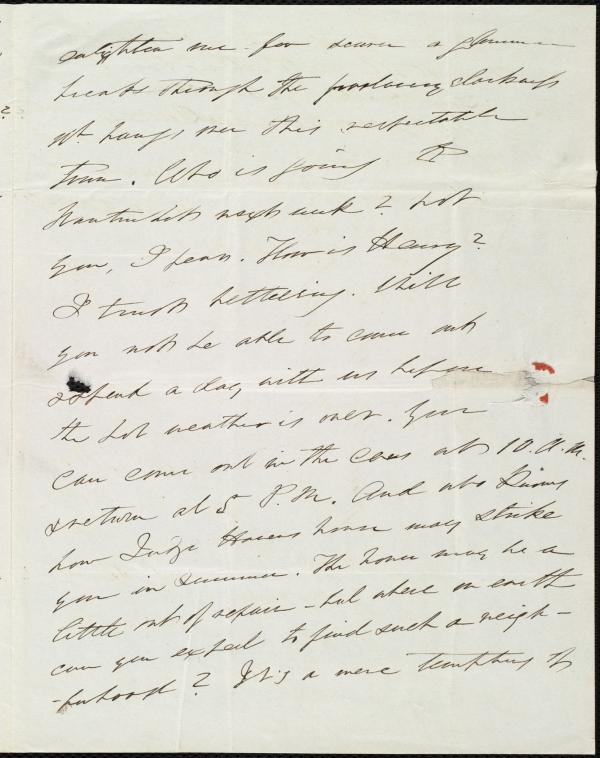 enlighten me - for scarce a glimmer
breaks through the darkness
wh. hangs over this respectable
town. Who is going to
Nantucket next week? Not
you, I fear. How is Henry?
I trust bettering. Will
you not be able to come out
& spend a day with us before
the hot weather is over. You
can come out in the cars at 10. A.M.
& return at 5 P.M. And who knows
how Judge house may strike
you in summer. The house may be a
little out of repair - but where on earth
can you expect to find such a neigh-
-borhood? It's a mere tempting of
?